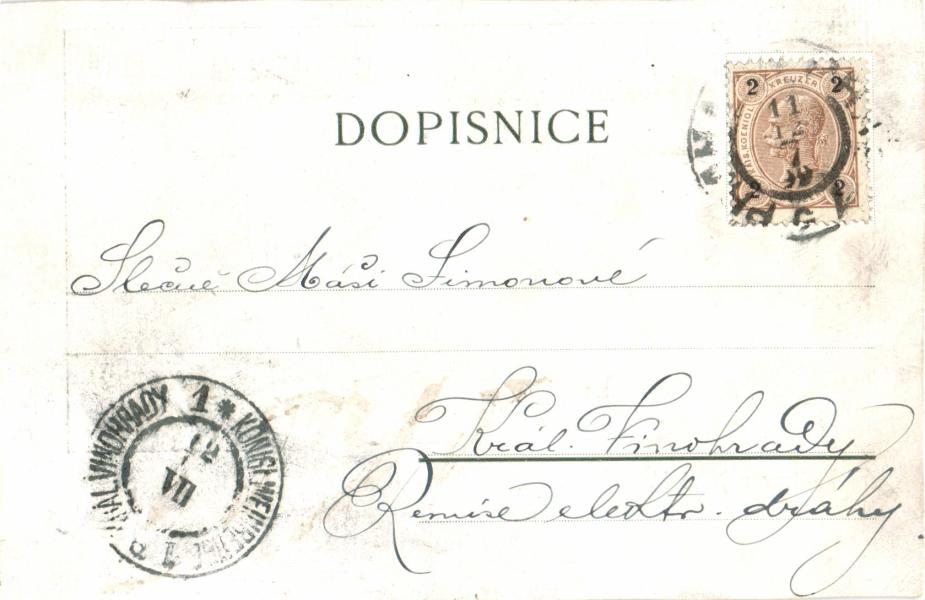 DOPISNICE
2 KREUZER 2
11
12
7
99
2 2
Slečně Máši Simonové
Král. Vinohrady
Remise elektr. dráhy
KRÁL. VINOHRADY 1 * KÖNIGL. WEINBERGE 1
12
VII